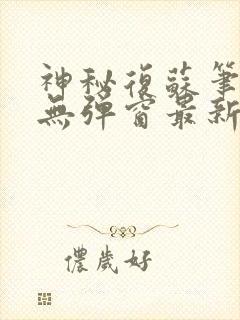 神秘復蘇筆
無彈窗最新
儂歲好